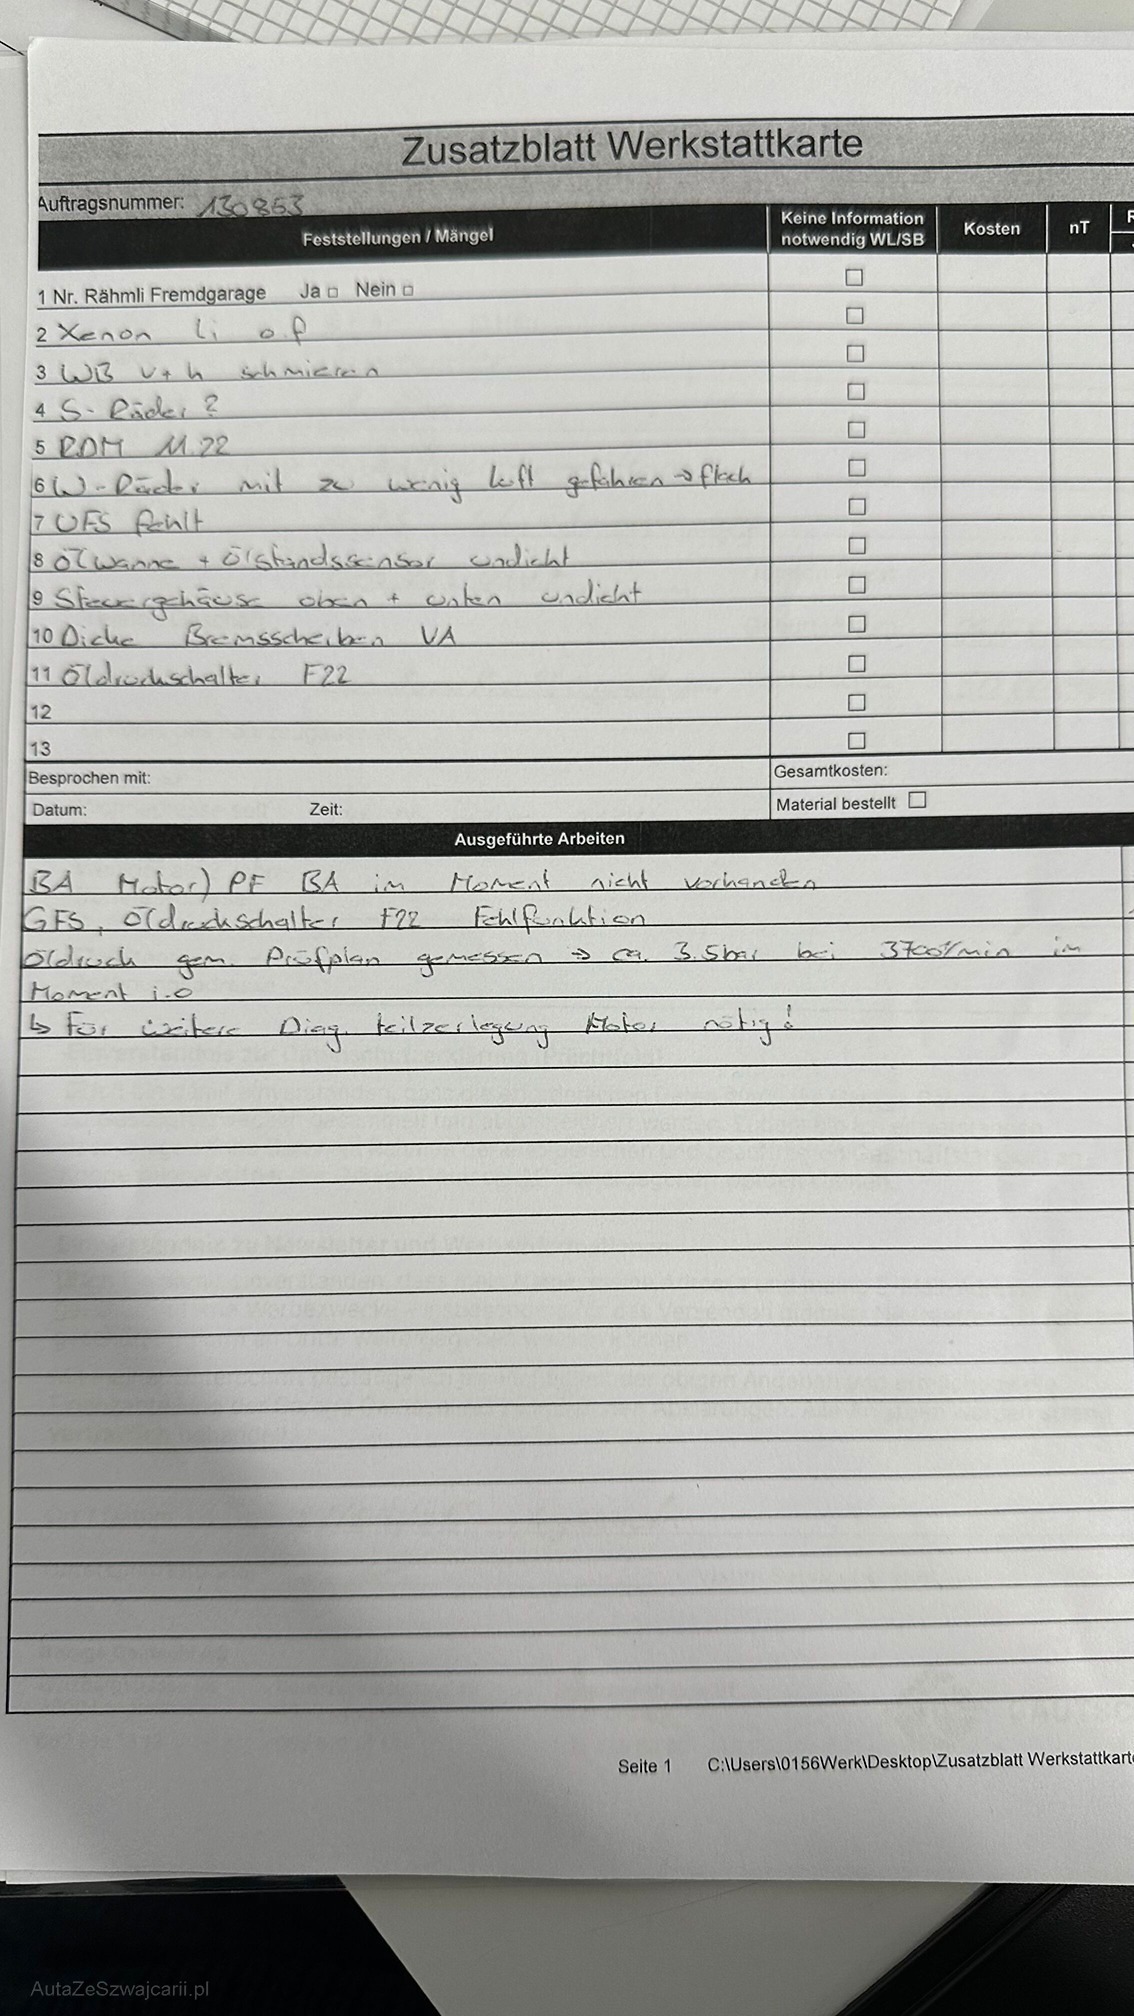 Zusatzblatt Werkstattkarte
Auftragsnummer: 130853
Feststellungen / Mängel
Keine Information notwendig WL/SB
Kosten
nT
1 Nr. Rähmli Fremdgarage Ja □ Nein □
2 Xenon li o.f
3 WB v+h schmieren
4 S-Räder ?
5 RDM 11.22
6 W-Räder mit zu wenig luft gefahren → flach
7 UFS fehlt
8 Ölwanne + Ölstandssensor undicht
9 Steuergehäuse oben + unten undicht
10 Dicke Bremsscheiben VA
11 Öldruckschalter F22
12
13
Besprochen mit:
Gesamtkosten:
Datum: Zeit:
Material bestellt □
Ausgeführte Arbeiten
BA Motor) PF BA im Moment nicht vorhanden
GFS, Öldruckschalter F22 Fehlfunktion
Öldruck gem. Prüfplan gemessen → ca. 3.5bar bei 3700 1/min im
Moment i.o
↳ Für weitere Diag. teilzerlegung Motor nötig!
Seite 1 C:\Users\0156Werk\Desktop\Zusatzblatt Werkstattkarte
AutaZeSzwajcarii.pl